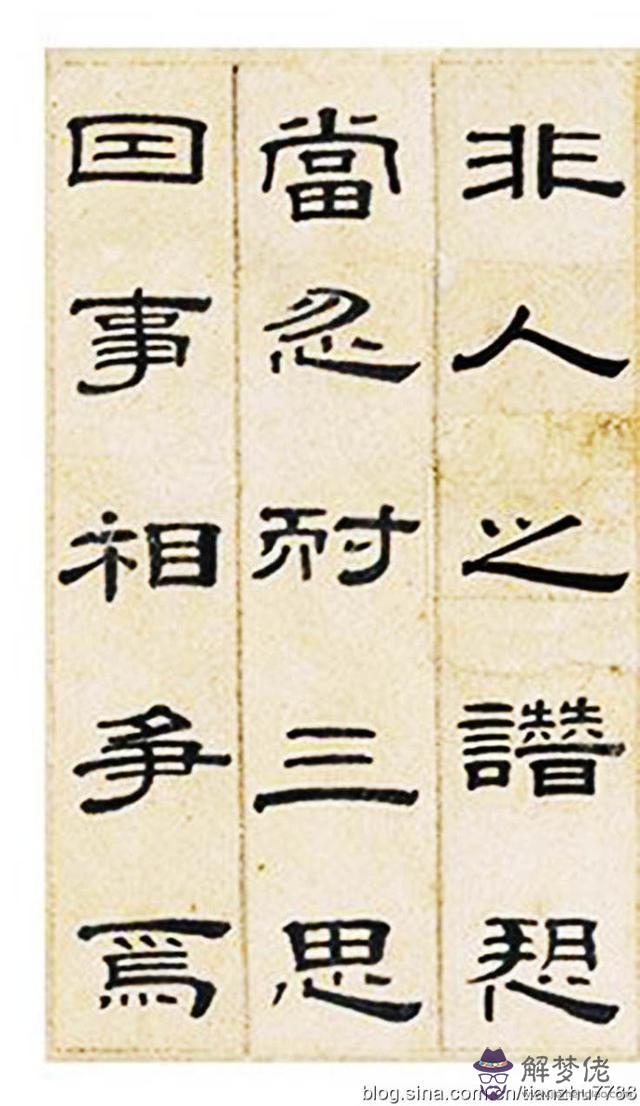 非人之譖愬
當忍耐三思
因事相爭焉
解梦佬
blog.sina.com.cn/tianzhu7788